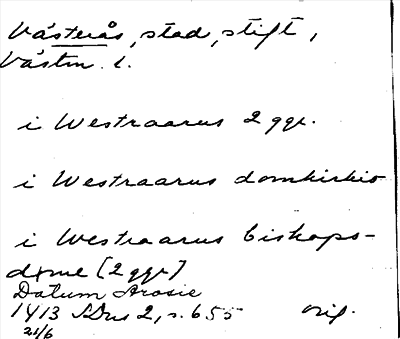 Västerås, stad, stift,
Västm. l.
i Westraarus 2 ggr.
i Westraarus domkirkio
i Westraarus biskops-
døme (2 ggr)
Datum Arosie
1413 SDns 2, s. 655 orig.
21/6